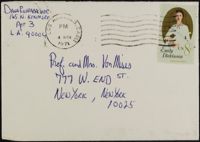 165 N. KENMORE
APT 3
L.A. 90004
PM
1971
Emily
Dickinson
8c
Prof. and Mrs. Von Mises
777 W. END ST.
NEW YORK, NEW YORK
10025